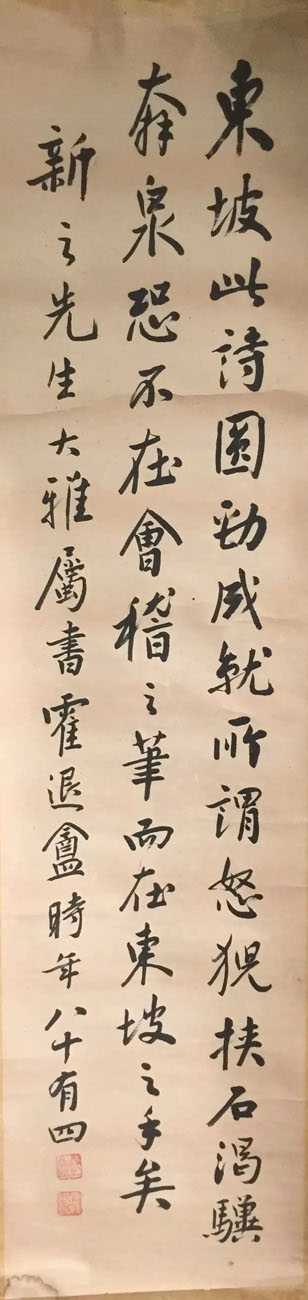 東坡此詩圆勁成就所謂怒猊抉石渴驥
奔泉恐不在會稽之筆而在東坡之手矣
新之先生大雅屬書霍退盦時年八十有四